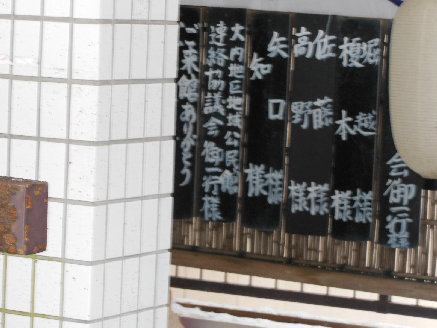 会御一行様
堀越様
榎木様
佐藤様
高野様
矢口様
知様
大内地区地域公民館
連絡協議会御一行様
ご来館ありがとう